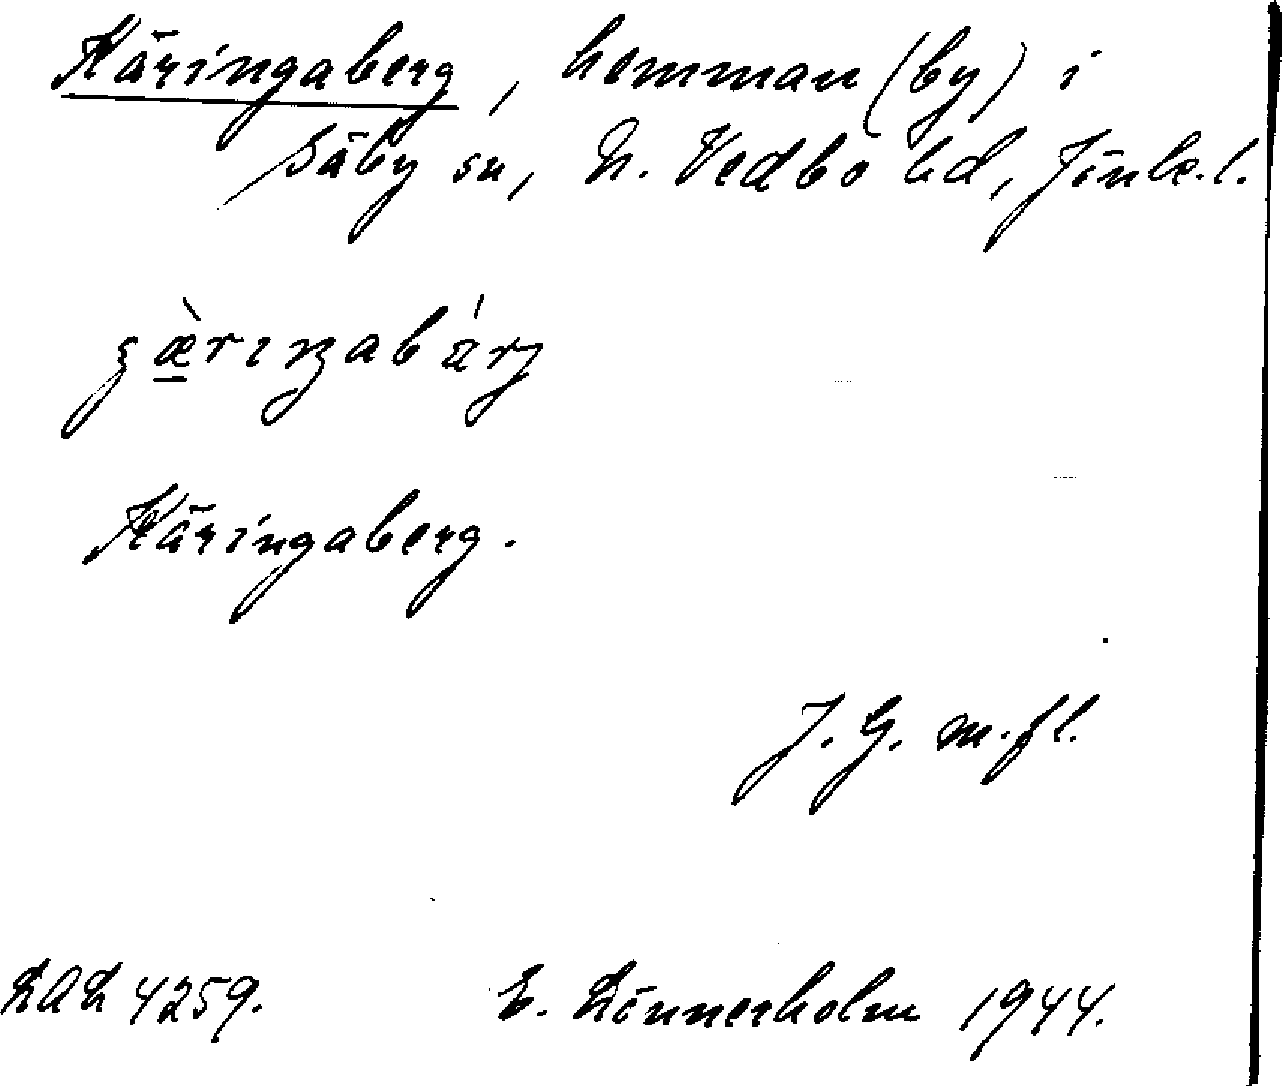 Käringaberg, hemman (by) i
Säby sn, N. Vedbo hd, Jönk. l.
Käringaberg.
J. G. m. fl.
4259. E. Lönnerholm 1944.